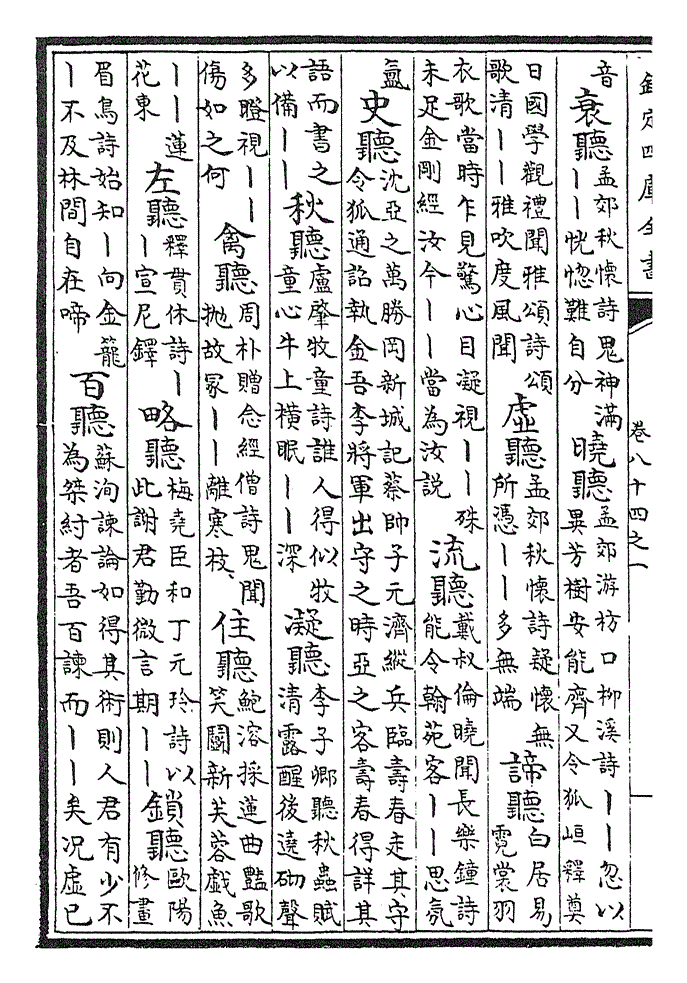 欽定四庫全書 卷八十四之一
音 衰聽 孟郊秋懷詩鬼神滿丨丨恍惚難自分 曉聽 孟郊游枋口柳溪詩丨丨忽以異芳樹安能齊又令狐峘釋奠
日國學觀禮聞雅頌詩頌歌清丨丨雅吹度風聞 虛聽 孟郊秋懷詩疑懷無所憑丨丨多無端 諦聽 白居易霓裳羽
衣歌當時乍見驚心目凝視丨丨殊未足金剛經汝今丨丨當為汝說 流聽 戴叔倫曉聞長樂鐘詩能令翰苑客丨丨思氛
氲 史聽 沈亞之萬勝岡新城記蔡帥子元濟縱兵臨壽春走其守令狐通詔執金吾李將軍出守之時亞之客壽春得詳其
語而書之以備丨丨 秋聽 盧肇牧童詩誰人得似牧童心牛上橫眠丨丨深 凝聽 李子卿聽秋蟲賦清露醒後遶砌聲
多瞪視丨丨傷如之何 禽聽 周朴贈念經僧詩鬼聞抛故冢丨丨離寒枝 住聽 鮑溶採蓮曲豔歌笑鬭新芙蓉戲魚
丨丨蓮花東 左聽 釋貫休詩丨丨宣尼鐸 略聽 梅堯臣和丁元珍詩以此謝君勤微言期丨丨 鎖聽 歐陽修畫
眉鳥詩始知丨向金籠丨不及林間自在啼 百聽 蘇洵諫論如得其術則人君有少不為桀紂者吾百諫而丨丨矣况虛已